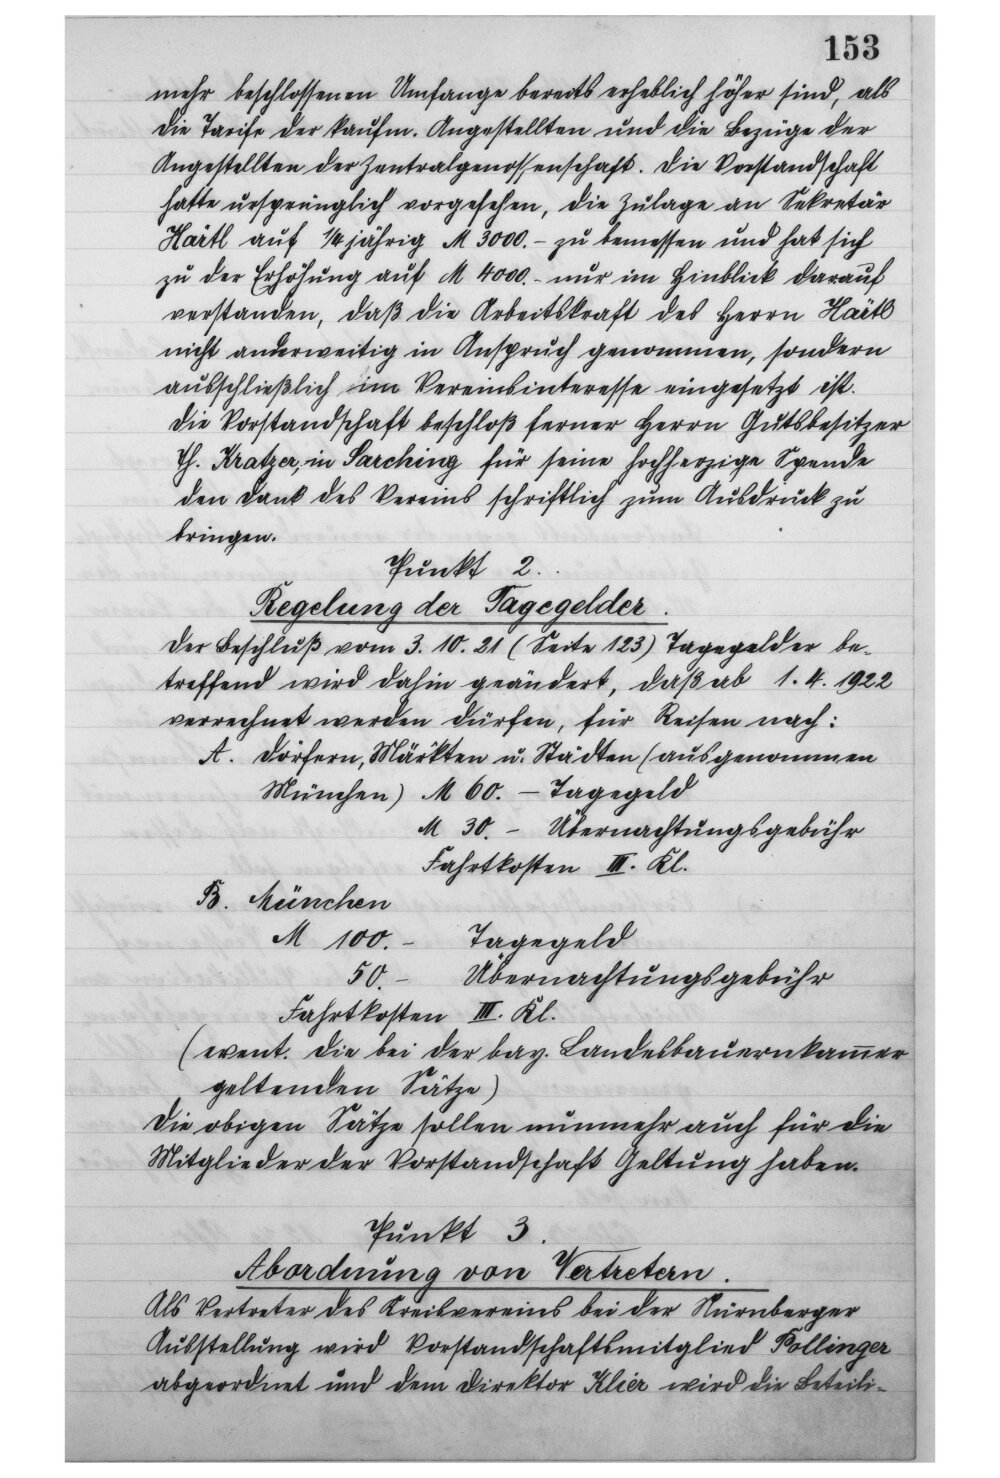 153
mehr beschlossenen Umfange bereits erheblich höher sind, als
die Tarife der kaufm. Angestellten und die Bezüge der
Angestellten der Zentralgenossenschaft. Die Vorstandschaft
hatte ursprünglich vorgesehen, die Zulage an Sekretär
Härtl auf 1/4 jährig M 3000.- zu bemessen und hat sich
zu der Erhöhung auf M 4000.- nur im Hinblick darauf
verstanden, daß die Arbeitskraft des Herrn Härtl
nicht anderweitig in Anspruch genommen, sondern
ausschließlich im Vereinsinteresse eingesetzt ist.
Die Vorstandschaft beschloß ferner Herrn Gutsbesitzer
Th. Kratzer, in Sarching für seine hochherzige Spende
den Dank des Vereins schriftlich zum Ausdruck zu
bringen.
Punkt 2.
Regelung der Tagegelder.
Der Beschluß vom 3. 10. 21 (Seite 123) Tagegelder be-
treffend wird dahin geändert, daß ab 1. 4. 1922
verrechnet werden dürfen, für Reisen nach:
A. Dörfern, Märkten u. Städten (ausgenommen
München) M 60. - Tagegeld
M 30. - Übernachtungsgebühr
Fahrtkosten III. Kl.
B. München
M 100. - Tagegeld
50. - Übernachtungsgebühr
Fahrtkosten III. Kl.
(event. die bei der bay. Landesbauernkam̅er
geltenden Sätze)
Die obigen Sätze sollen nunmehr auch für die
Mitglieder der Vorstandschaft Geltung haben.
Punkt 3.
Abordnung von Vertretern.
Als Vertreter des Kreisvereins bei der Nürnberger
Ausstellung wird Vorstandschaftsmitglied Pollinger
abgeordnet und dem Direktor Klier wird die Beteili-